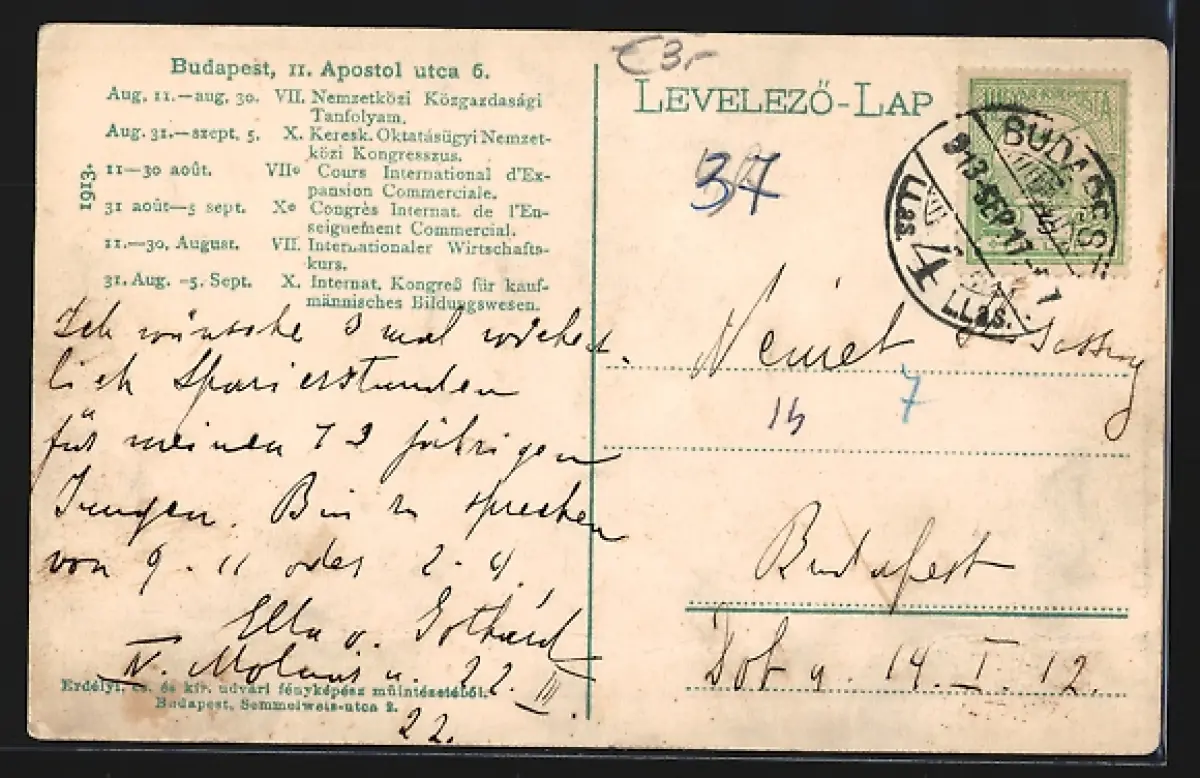 Budapest, II. Apostol utca 6.
1913.
Aug. 11.—aug. 30. VII. Nemzetközi Közgazdasági
Tanfolyam.
Aug. 31.—szept. 5. X. Keresk. Oktatásügyi Nemzet-
közi Kongresszus.
11—30 août. VIIe Cours International d'Ex-
pansion Commerciale.
31 août—5 sept. Xe Congrès Internat. de l'En-
seignement Commercial.
11.—30. August. VII. Internationaler Wirtschafts-
kurs.
31. Aug. -5. Sept. X. Internat. Kongreß für kauf-
männisches Bildungswesen.
Ich wünsche 3 mal wöchent-
lich Spazierstunden
für meinen 13 jährigen
Jungen. Bin zu sprechen
von 9 - 11 oder 2 - 4.
Ella v. Gothárd
IV. Molnár u. 22. III.
22.
Erdélyi, cs. és kir. udvári fényképész műintézetéből.
Budapest, Semmelweis-utca 2.
€3,-
LEVELEZŐ-LAP
37
MAGYAR KIR. POSTA
BUDAPEST
913 SEP 17
4
Német
15
7
Budapest
Dob u. 14. I. 12.